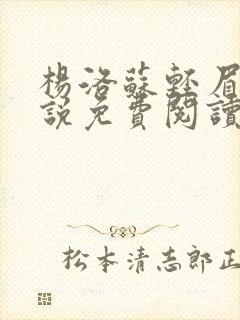 楊洛蘇輕眉
說免費閱讀
松本清志郎正